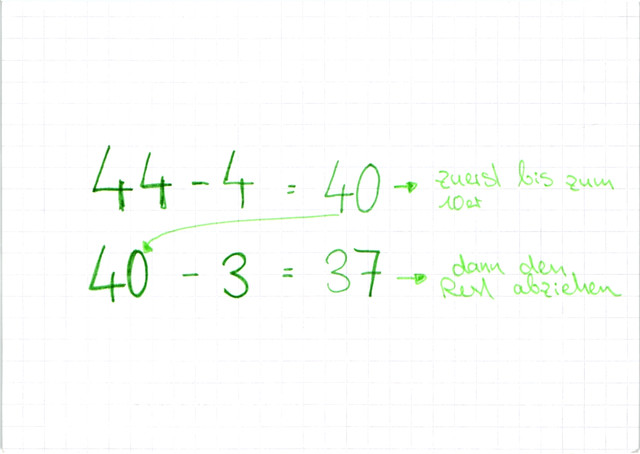 44 - 4 = 40 → zuerst bis zum
10er
40 - 3 = 37 → dann den
Rest abziehen